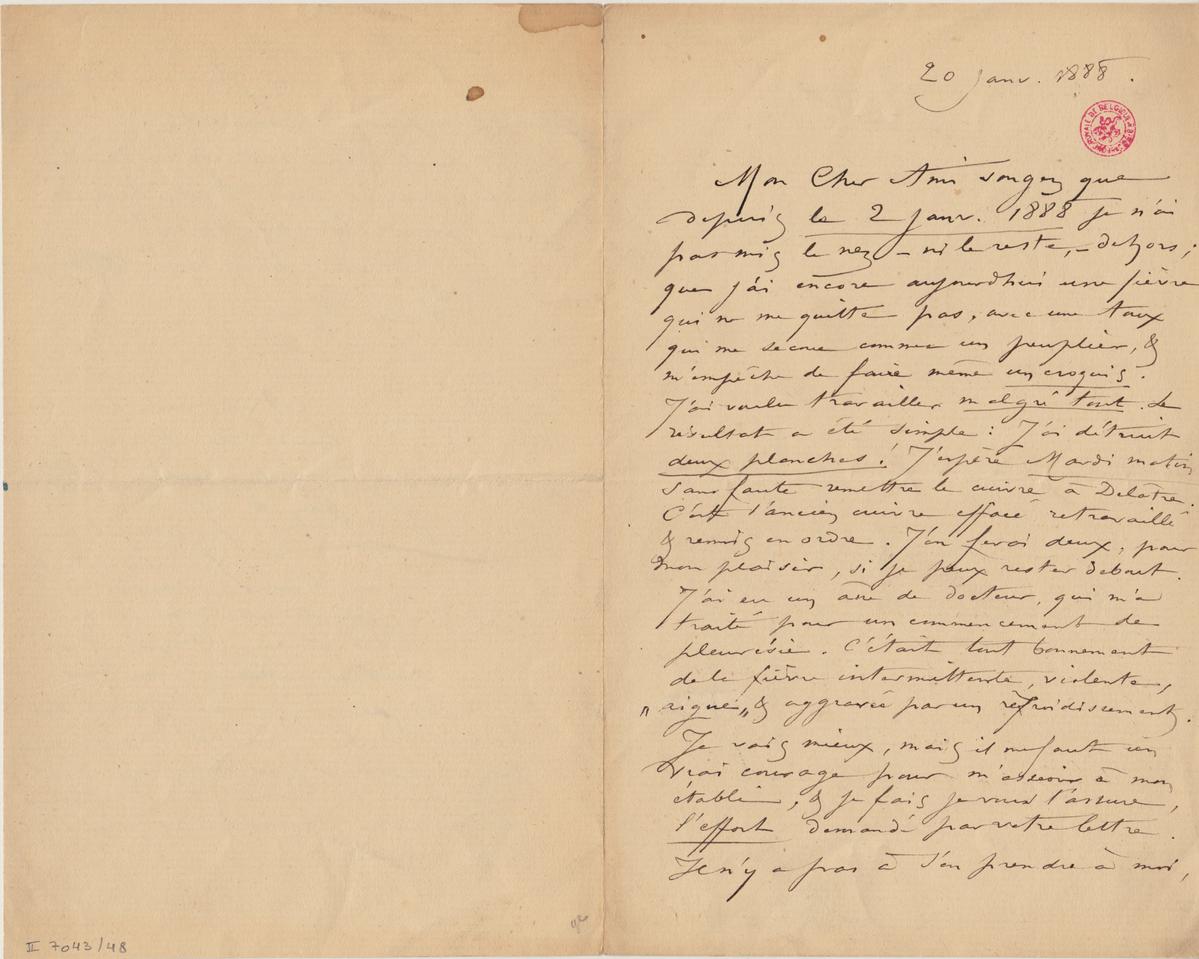 20 Janv. 1888.
BIBLIOTHÈQUE ROYALE DE BELGIQUE
Mon Cher Ami songez que
depuis le 2 Janv. 1888 je n'ai
pas mis le nez – ni le reste, – dehors ;
que j'ai encore aujourd'hui une fièvre
qui ne me quitte pas, avec une toux
qui me secoue comme un peuplier, &
m'empêche de faire même un croquis.
J'ai voulu travailler malgré tout. Le
résultat a été simple : J'ai détruit
deux planches ! J'espère Mardi matin
sans faute remettre le cuivre à Delâtre.
C'est l'ancien cuivre effacé retravaillé
& remis en ordre. J'en ferai deux, pour
mon plaisir, si je peux rester debout.
J'ai eu un âne de docteur, qui m'a
traité pour un commencement de
pleurésie. C'était tout bonnement
de la fièvre intermittente, violente,
"aigue" & aggravée par un refroidissement.
Je vais mieux, mais il me faut un
vrai courage pour m'asseoir à mon
établi, & je fais je vous l'assure,
l'effort demandé par votre lettre.
Il n'y a pas à s'en prendre à moi,
II 7043/48